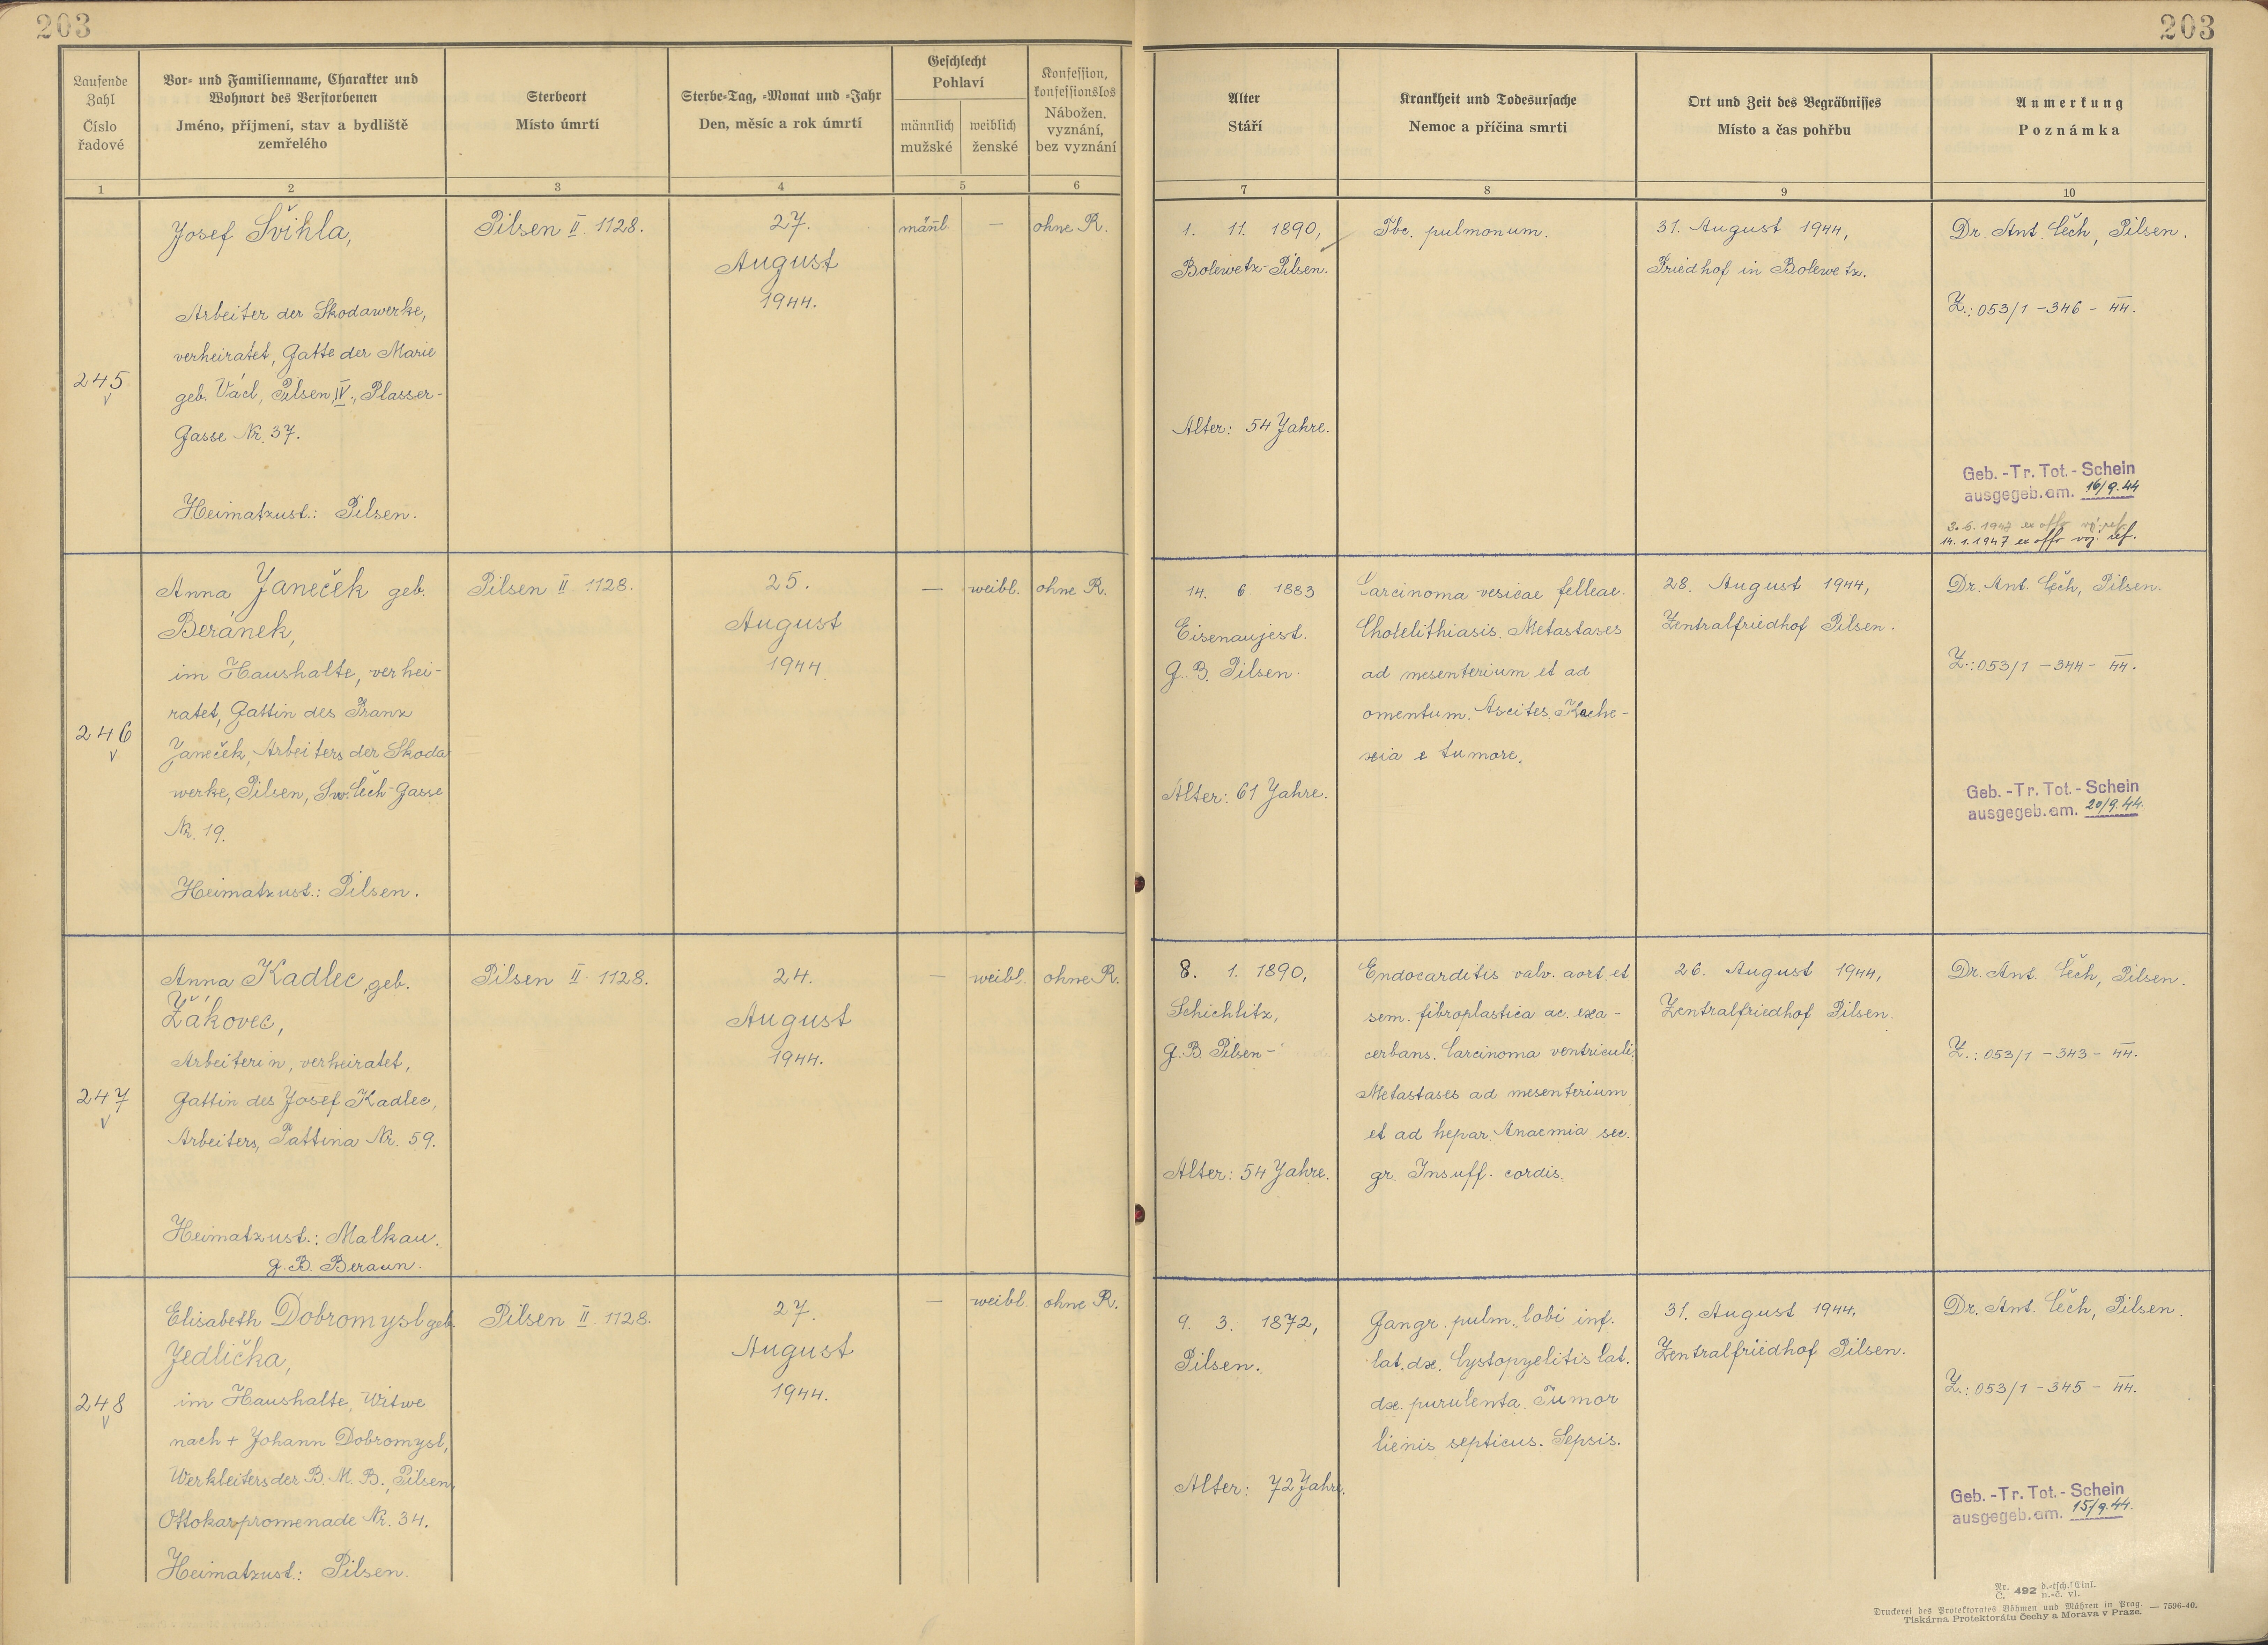 203
203
Laufende
Zahl
Číslo
řadové
Vor- und Familienname, Charakter und
Wohnort des Verstorbenen
Jméno, příjmení, stav a bydliště
zemřelého
Sterbeort
Místo úmrtí
Sterbe-Tag, -Monat und -Jahr
Den, měsíc a rok úmrtí
Geschlecht
Pohlaví
männlich
mužské
weiblich
ženské
Konfession,
konfessionslos
Nábožen.
vyznání,
bez vyznání
Alter
Stáří
Krankheit und Todesursache
Nemoc a příčina smrti
Ort und Zeit des Begräbnisses
Místo a čas pohřbu
Anmerkung
Poznámka
1
2
3
4
5
6
7
8
9
10
245
Josef Švihla,
Arbeiter der Skodawerke,
verheiratet, Gatte der Marie
geb. Václ, Pilsen IV., Plasser-
Gasse Nr. 37.
Heimatzust.: Pilsen.
Pilsen II. 1128.
27.
August
1944.
männl.
—
ohne R.
1. 11. 1890,
Bolewetz-Pilsen.
Alter: 54 Jahre.
Tbc. pulmonum.
31. August 1944,
Friedhof in Bolewetz.
Dr. Ant. Čech, Pilsen.
Z.: 053/1 - 346 - 44.
Geb.-Tr. Tot.-Schein
ausgegeb. am. 16/9.44
3.6.1947 ex offo
14.1.1947 ex offo voj. ref.
246
Anna Janeček geb.
Beránek,
im Haushalte, verhei-
ratet, Gattin des Franz
Janeček, Arbeiters der Skoda
werke, Pilsen, Sw. Čech-Gasse
Nr. 19.
Heimatzust.: Pilsen.
Pilsen II. 1128.
25.
August
1944.
—
weibl.
ohne R.
14. 6. 1883
Eisenaujest.
G.B. Pilsen.
Alter: 61 Jahre.
Carcinoma vesicae felleae.
Cholelithiasis. Metastases
ad mesenterium et ad
omentum. Ascites. Kache-
xia e tumore.
28. August 1944,
Zentralfriedhof Pilsen.
Dr. Ant. Čech, Pilsen.
Z.: 053/1 - 344 - 44.
Geb.-Tr. Tot.-Schein
ausgegeb. am. 20/9.44.
247
Anna Kadlec, geb.
Žákovec,
Arbeiterin, verheiratet,
Gattin des Josef Kadlec,
Arbeiters, Pattina Nr. 59.
Heimatzust.: Malkau.
G.B. Beraun.
Pilsen II. 1128.
24.
August
1944.
—
weibl.
ohne R.
8. 1. 1890,
Schichlitz,
G.B. Pilsen-
Alter: 54 Jahre.
Endocarditis valv. aort. et
sem. fibroplastica ac. exa-
cerbans. Carcinoma ventriculi.
Metastases ad mesenterium
et ad hepar. Anaemia sec.
gr. Insuff. cordis.
26. August 1944,
Zentralfriedhof Pilsen.
Dr. Ant. Čech, Pilsen.
Z.: 053/1 - 343 - 44.
248
Elisabeth Dobromysl geb.
Jedlička,
im Haushalte, Witwe
nach + Johann Dobromysl,
Werkleiters der B.M.B., Pilsen,
Ottokarpromenade Nr. 34.
Heimatzust.: Pilsen.
Pilsen II. 1128.
27.
August
1944.
—
weibl.
ohne R.
9. 3. 1872,
Pilsen.
Alter: 72 Jahre.
Gangr. pulm. lobi inf.
lat. dx. Cystopyelitis lat.
dx. purulenta. Tumor
lienis septicus. Sepsis.
31. August 1944,
Zentralfriedhof Pilsen.
Dr. Ant. Čech, Pilsen.
Z.: 053/1 - 345 - 44.
Geb.-Tr. Tot.-Schein
ausgegeb. am. 15/9.44.
Nr. 492 d.-tsch. Einl.
Č. 492 n.-č. vl.
Druckerei des Protektorates Böhmen und Mähren in Prag. — 7596-40.
Tiskárna Protektorátu Čechy a Morava v Praze.